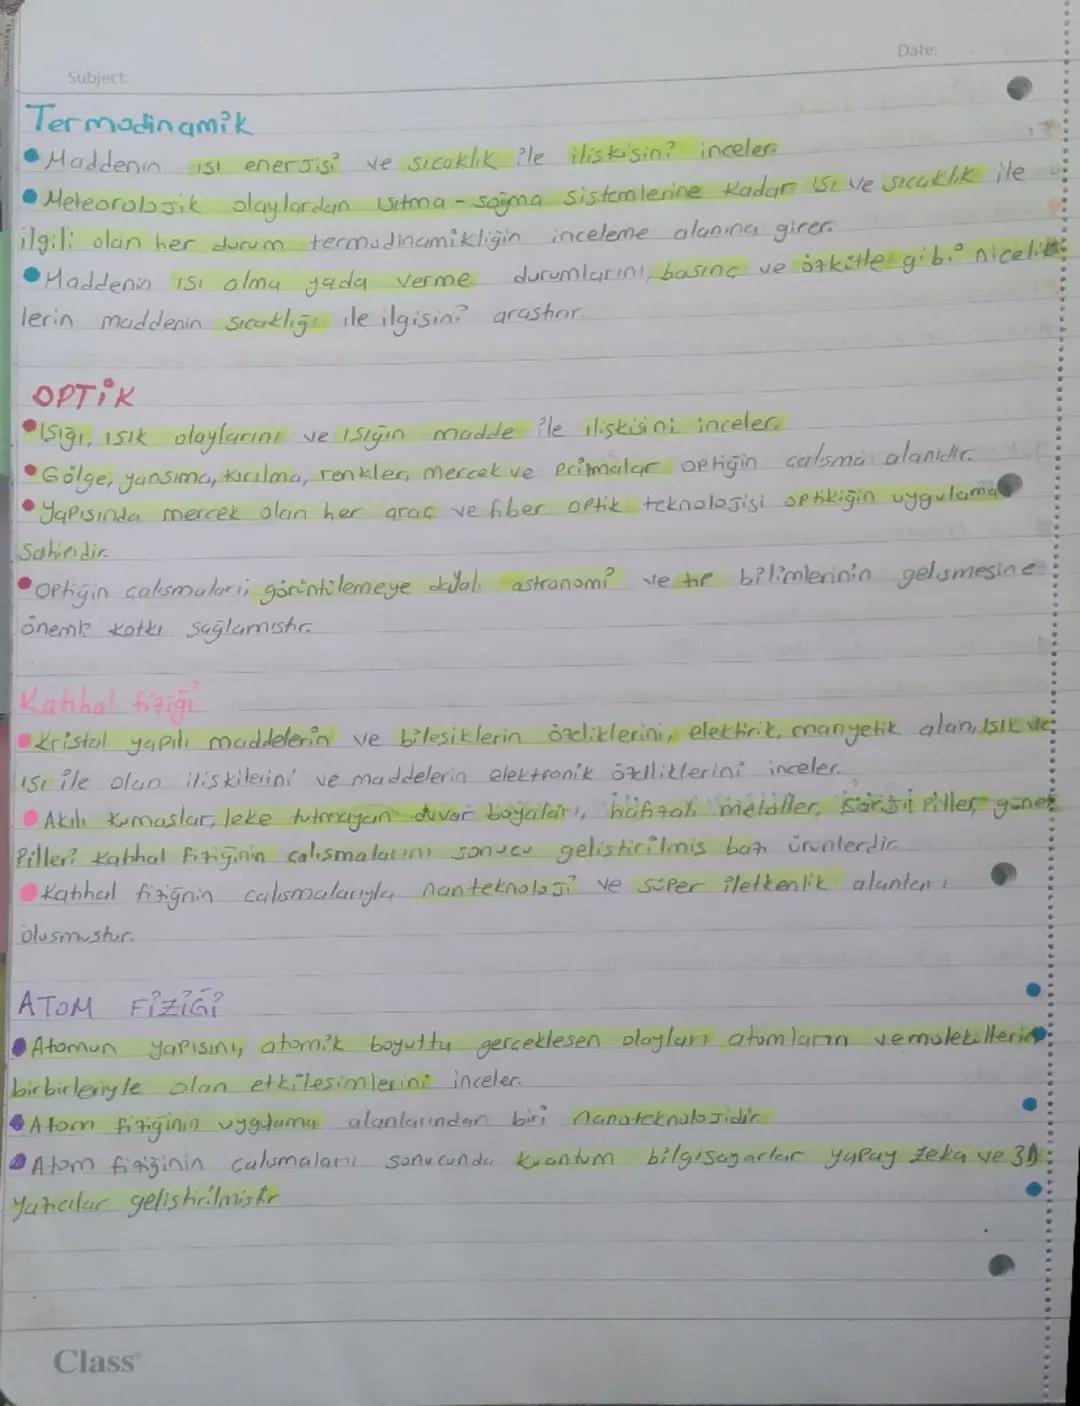 Date:
Subject:
Termodinamik
Maddenin ısı enerjisi ve sıcaklık ile ilişkisini inceler.
Meteorolojik olaylardan ısıtma - soğma sistemlerine kadar ısı ve sıcaklık ile
ilgili olan her durum termodinamikliğin inceleme alanına girer.
Maddenin ısı alma yada verme durumlarını, basınç ve özkütle gibi nicelik-
lerin maddenin sıcaklığı ile ilgisini araştırır.
OPTİK
Işığı, ışık olaylarını ve ışığın madde ile ilişkisini inceler.
Gölge, yansıma, kırılma, renkler, mercek ve prizmalar optiğin çalışma alanıdır.
Yapısında mercek olan her araç ve fiber optik teknolojisi optikiğin uygulama
sahisidir.
Optiğin çalışmaları, görüntülemeye dayalı astronomi ve tıp bilimlerinin gelişmesine
önemli katkı sağlamıştır.
Katıhal fiziği
Kristal yapılı maddelerin ve bileşiklerin özeliklerini, elektirik, manyetik alan, ışık ve
ısı ile olan ilişkilerini ve maddelerin elektronik özelliklerini inceler.
Akıllı kumaşlar, leke tutmayan duvar boyaları, hafızalı metaller, şarjlı piller, güneş
Pilleri katıhal fiziğinin çalışmalarını sonucu geliştirilmiş bazı ürünlerdir.
Katıhal fiziğnin çalışmalarıyla nanteknoloji ve süper iletkenlik alanları
oluşmuştur.
ATOM FİZİĞİ
Atomun yapısını, atomik boyuttu gerçekleşen olayları atomların ve moleküllerin
birbirleriyle olan etkileşimlerini inceler.
Atom fiziğinin uygulama alanlarından biri nanoteknolojidir.
Atom fiziğinin çalışmaları sonucunda kuantum bilgisayarlar yapay zeka ve 3D
yazıcılar geliştirilmiştir
Class